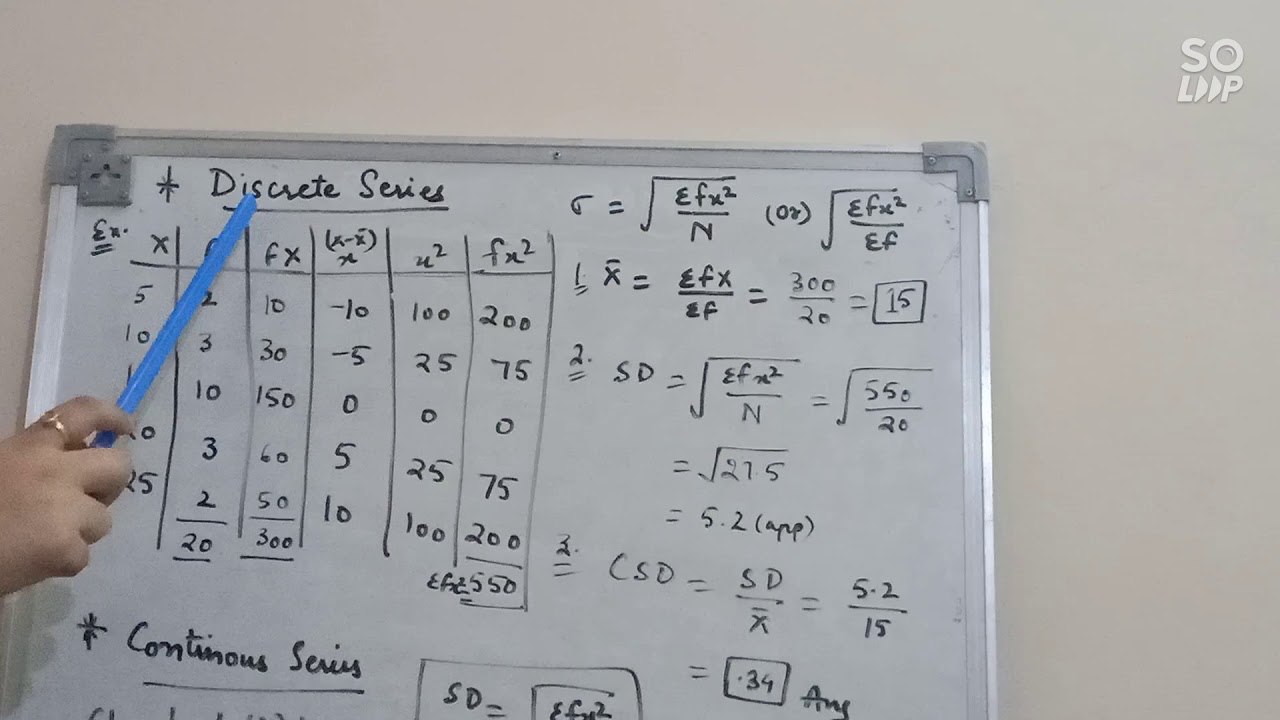 SO
LOOP
* Discrete Series
σ = √(Σfx²/N) (or) √(Σfx²/Σf)
Ex.
X | | fX | (x-x̄) x | x² | fx²
5 | 2 | 10 | -10 | 100 | 200
10 | 3 | 30 | -5 | 25 | 75
10 | 150 | 0 | 0 | 0
3 | 60 | 5 | 25 | 75
25 | 2 | 50 | 10 | 100 | 200
20 | 300 | 550
1. X̄ = ΣfX/Σf = 300/20 = 15
2. SD = √(Σfx²/N) = √(550/20)
= √27.5
= 5.2 (app)
3. CSD = SD/X̄ = 5.2/15
= .34 Ans
* Continous Series
SD = √Σfx²